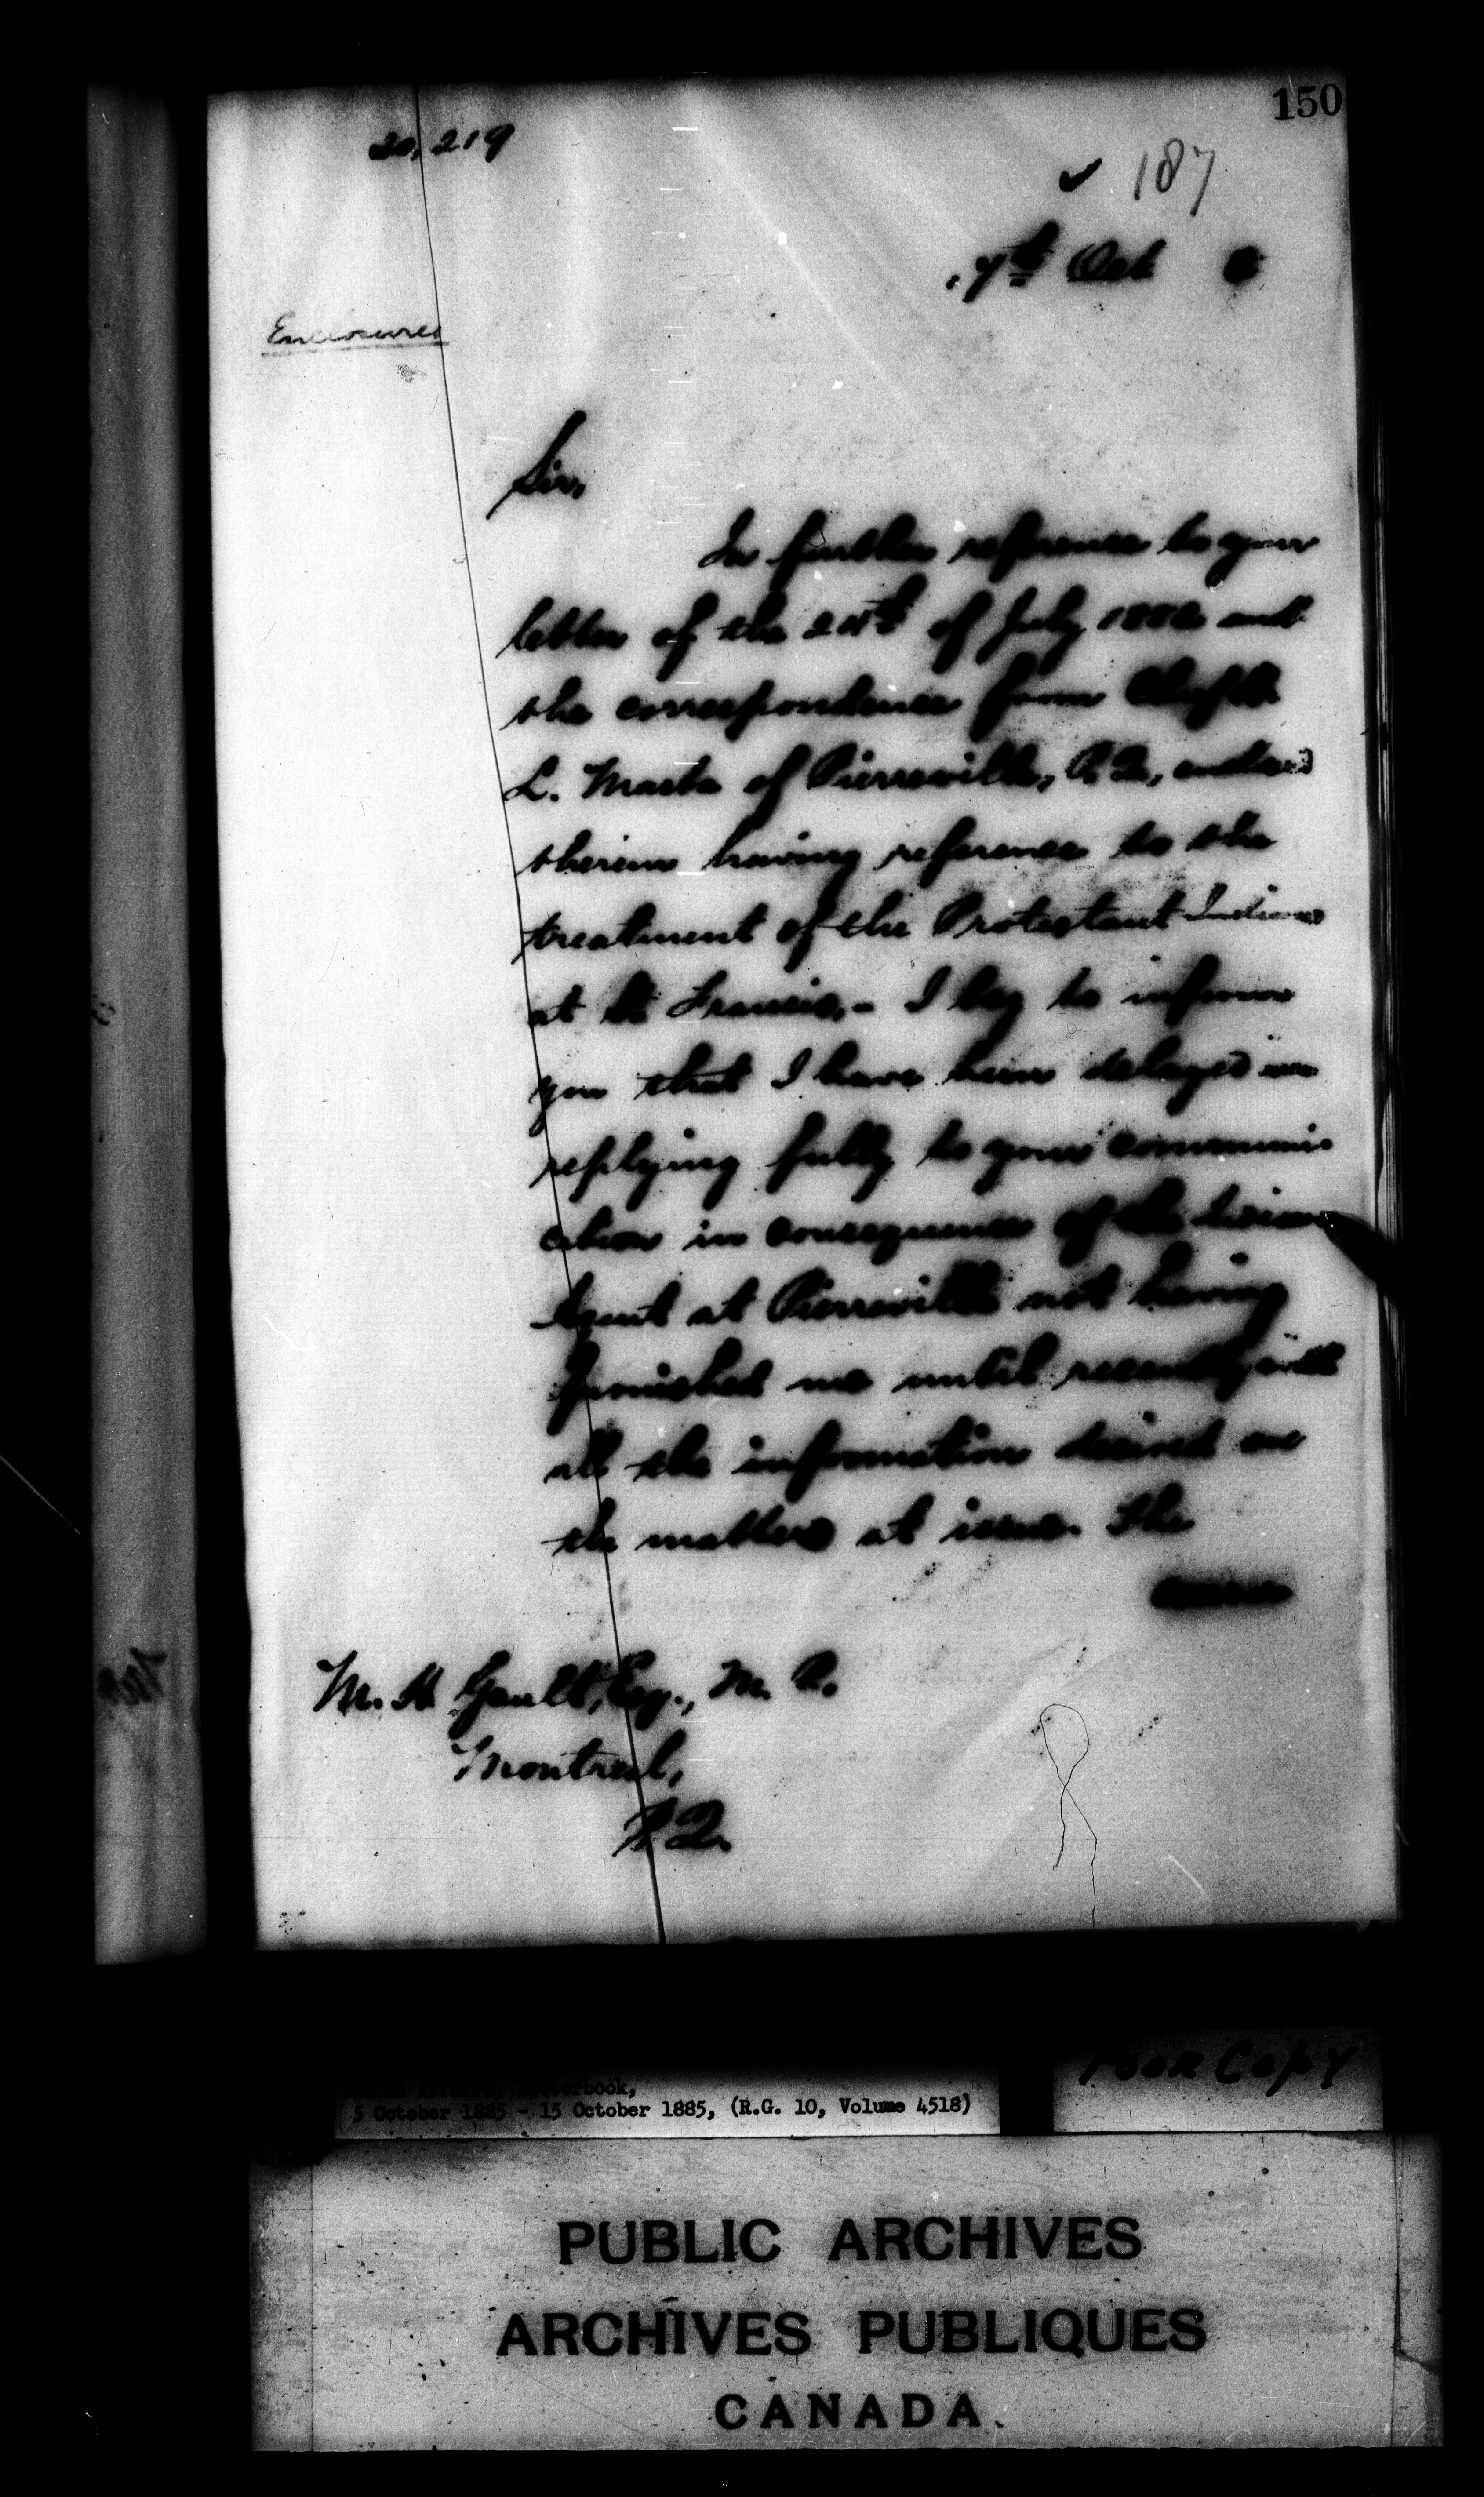 150
20,219
187
7th Oct
Enclosures
Sir,
In further reference to your
letter of the 24th of July 188 and
the correspondence from Chief
L. Masta of Pierreville, P.Q., enclosed
therein having reference to the
treatment of the Protestant Indians
at St. Francis, - I beg to inform
you that I have been delayed in
replying fully to your communi
cation in consequence of the
Agent at Pierreville not having
furnished me until recently with
all the information desired on
the matters at issue. The
M. H. Gault, Esq., M. P.
Montreal,
P.Q.
Poor Copy
Letterbook,
5 October 1885 - 15 October 1885, (R.G. 10, Volume 4518)
PUBLIC ARCHIVES
ARCHIVES PUBLIQUES
CANADA